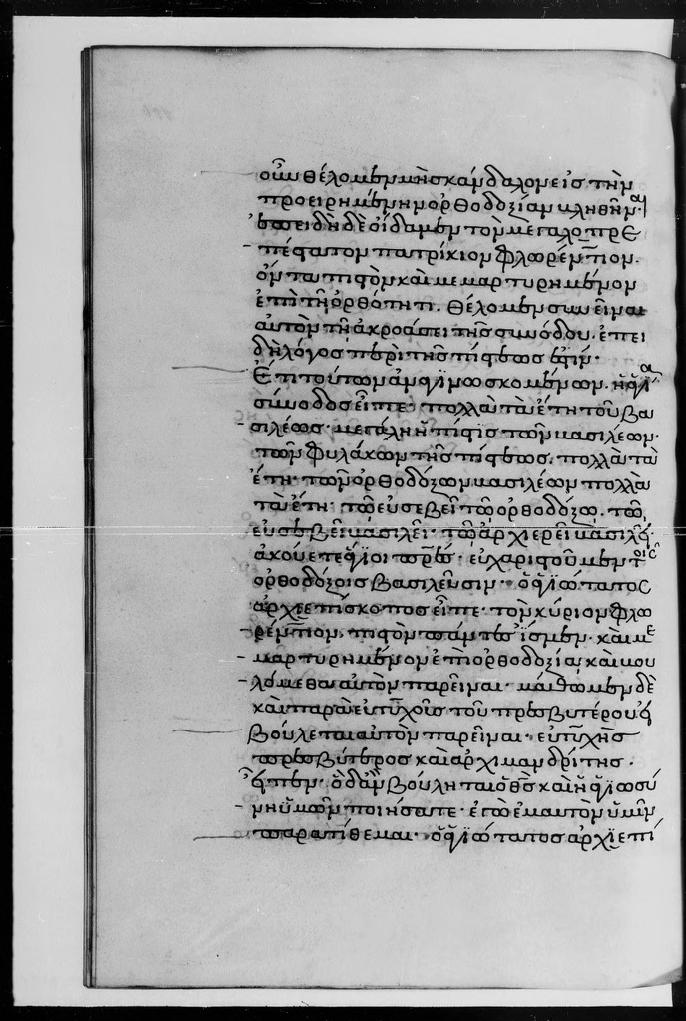 οὖν θέλομεν μὴ σκάνδαλον εἰς τὴν
προειρημένην ὀρθοδοξίαν κληθῆναι·
ἐπειδὴ δὲ οἴδαμεν τὸν μεγαλοπρε
πέστατον πατρίκιον φλωρέντιον.
ὄντα πιστὸν καὶ μεμαρτυρημένον
ἐπὶ τῇ ὀρθότητι. θέλομεν συνεῖναι
αὐτὸν τῇ ἀκροάσει τῆς συνόδου. ἐπει
δὴ λόγος περὶ τῆς πίστεώς ἐστιν·
Ἐπὶ τούτων ἀναγινωσκομένων. ἡ ἁγία
σύνοδος εἶπε· πολλὰ τὰ ἔτη τοῦ βα
σιλέως· μεγάλη ἡ πίστις τῶν βασιλέων·
τῶν φυλάκων τῆς πίστεως. πολλὰ τὰ
ἔτη· τῶν ὀρθοδόξων βασιλέων πολλὰ
τὰ ἔτη· τῷ εὐσεβεῖ τῷ ὀρθοδόξῳ. τῷ
εὐσεβεῖ βασιλεῖ· τῷ ἀρχιερεῖ βασιλεῖ·
ἀκούετε ἅγιοι πρὲς· εὐχαριστοῦμεν τοῖς
ὀρθοδόξοις βασιλεῦσιν· ὁ ἁγιώτατος
ἀρχιεπίσκοπος εἶπε· τὸν κύριον φλω
ρέντιον, πιστὸν πάντες ἴσμεν· καὶ με
μαρτυρημένον ἐπὶ ὀρθοδοξία, καὶ βου
λόμεθα αὐτὸν παρεῖναι· μάθωμεν δὲ
καὶ παρὰ εὐτυχοῦς τοῦ πρεσβυτέρου εἰ
βούλεται αὐτὸν παρεῖναι· εὐτυχὴς
πρεσβύτερος καὶ ἀρχιμανδρίτης.
εἶπεν· ὃ δἂν βούληται ὁ θς καὶ ἡ ἁγιωσύ
νη ὑμῶν ποιήσατε· ἐγὼ ἐμαυτὸν ὑμῖν
παρατίθεμαι· ὁ ἁγιώτατος ἀρχιεπί